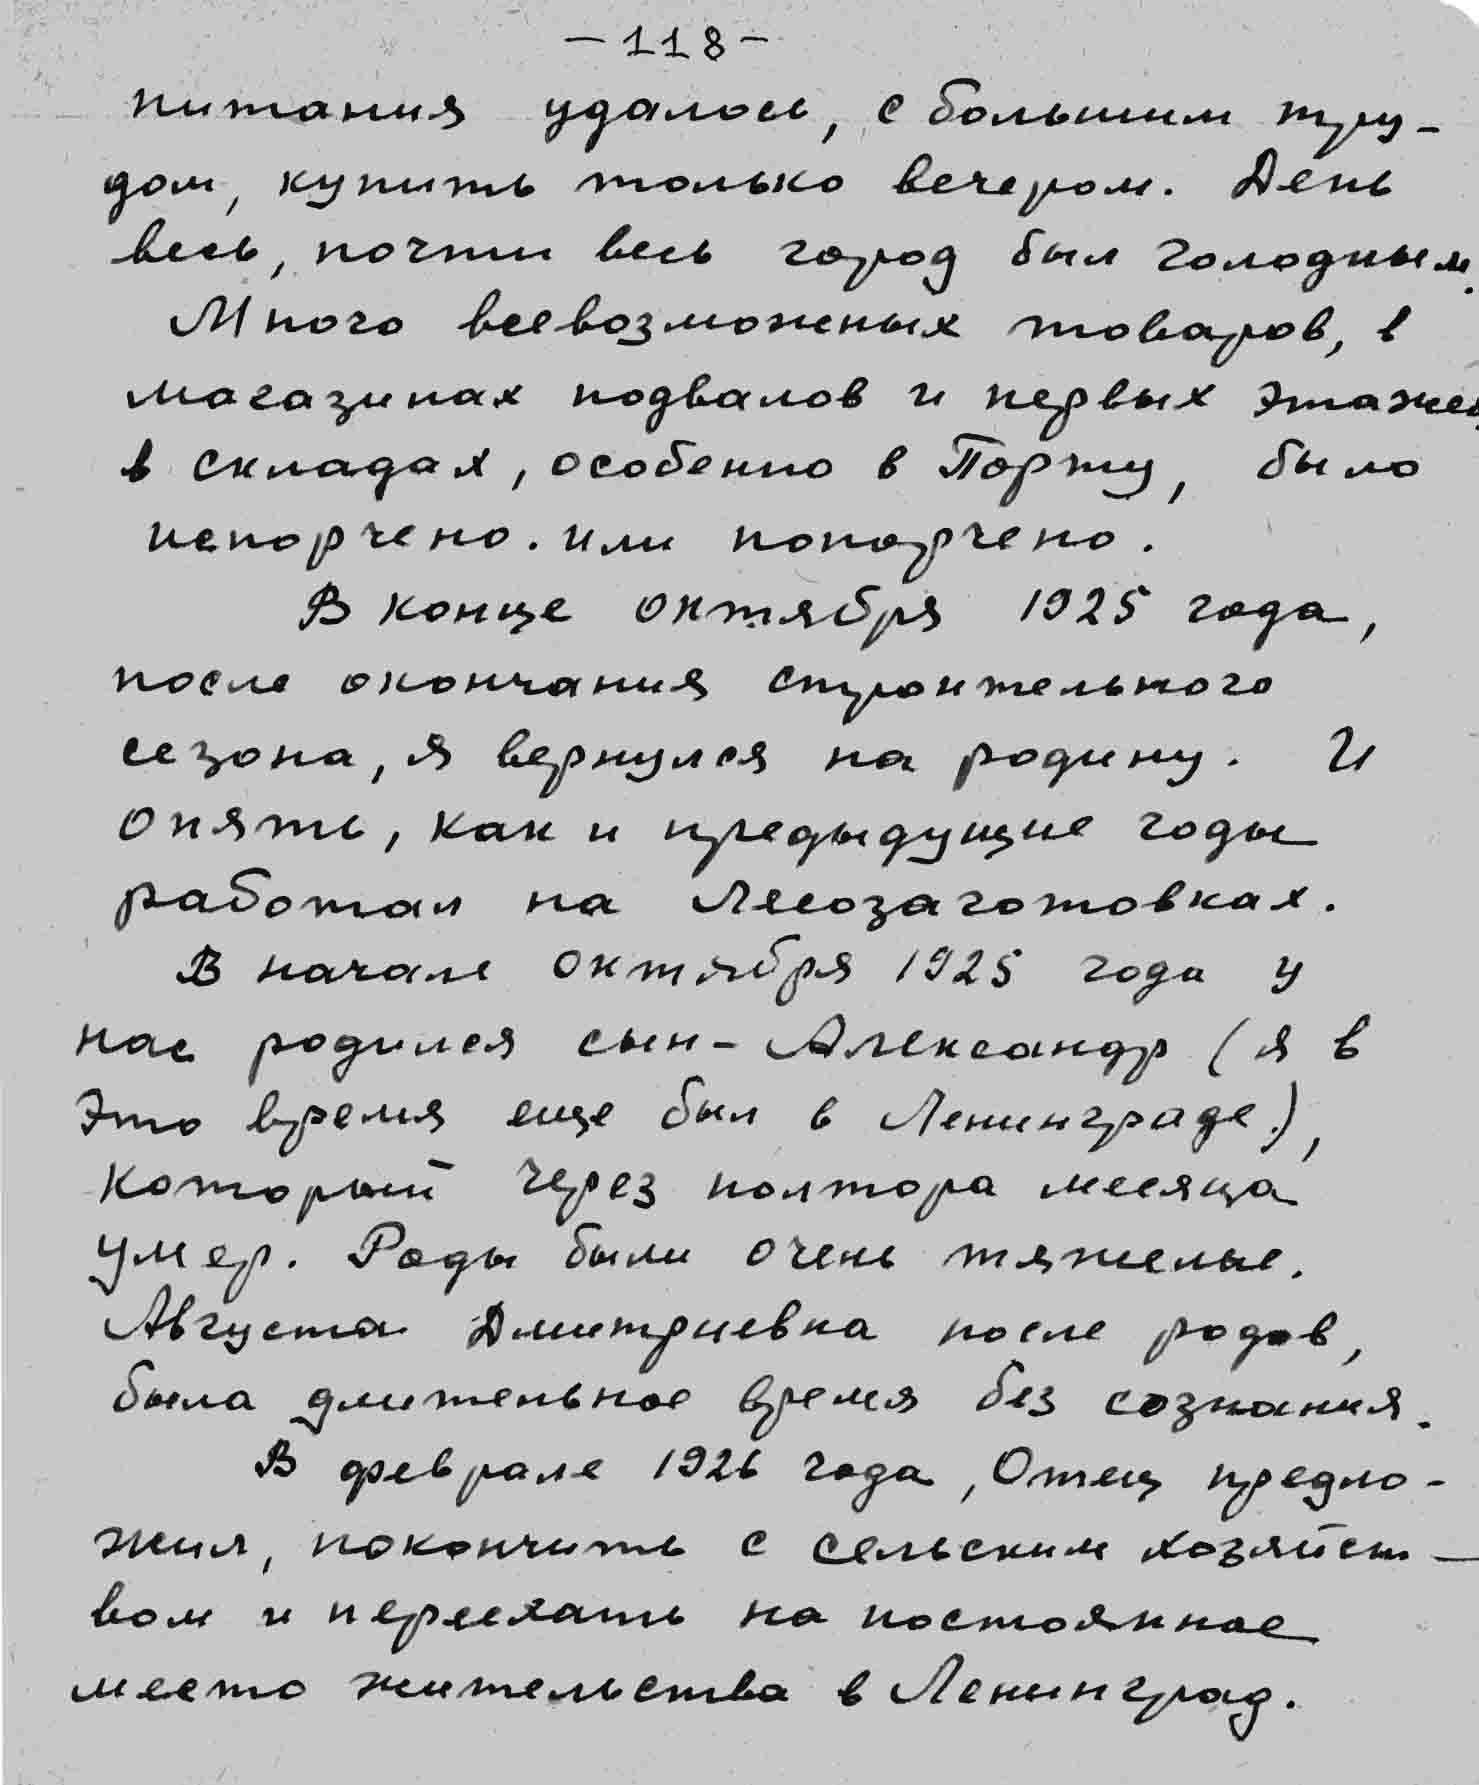 -118-
питания удалось, с большим тру-
дом, купить только вечером. День
весь, почти весь город был голодным.
Много всевозможных товаров, в
магазинах подвалов и первых этажей,
в складах, особенно в Порту, было
испорчено. или попорчено.
В конце октября 1925 года,
после окончания строительного
сезона, я вернулся на родину. И
опять, как и предыдущие годы
работал на лесозаготовках.
В начале октября 1925 года у
нас родился сын - Александр (я в
это время еще был в Ленинграде.),
который через полтора месяца
умер. Роды были очень тяжелые.
Августа Дмитриевна после родов,
была длительное время без сознания.
В феврале 1926 года, Отец предло-
жил, покончить с сельским хозяйст-
вом и переехать на постоянное
место жительства в Ленинград.